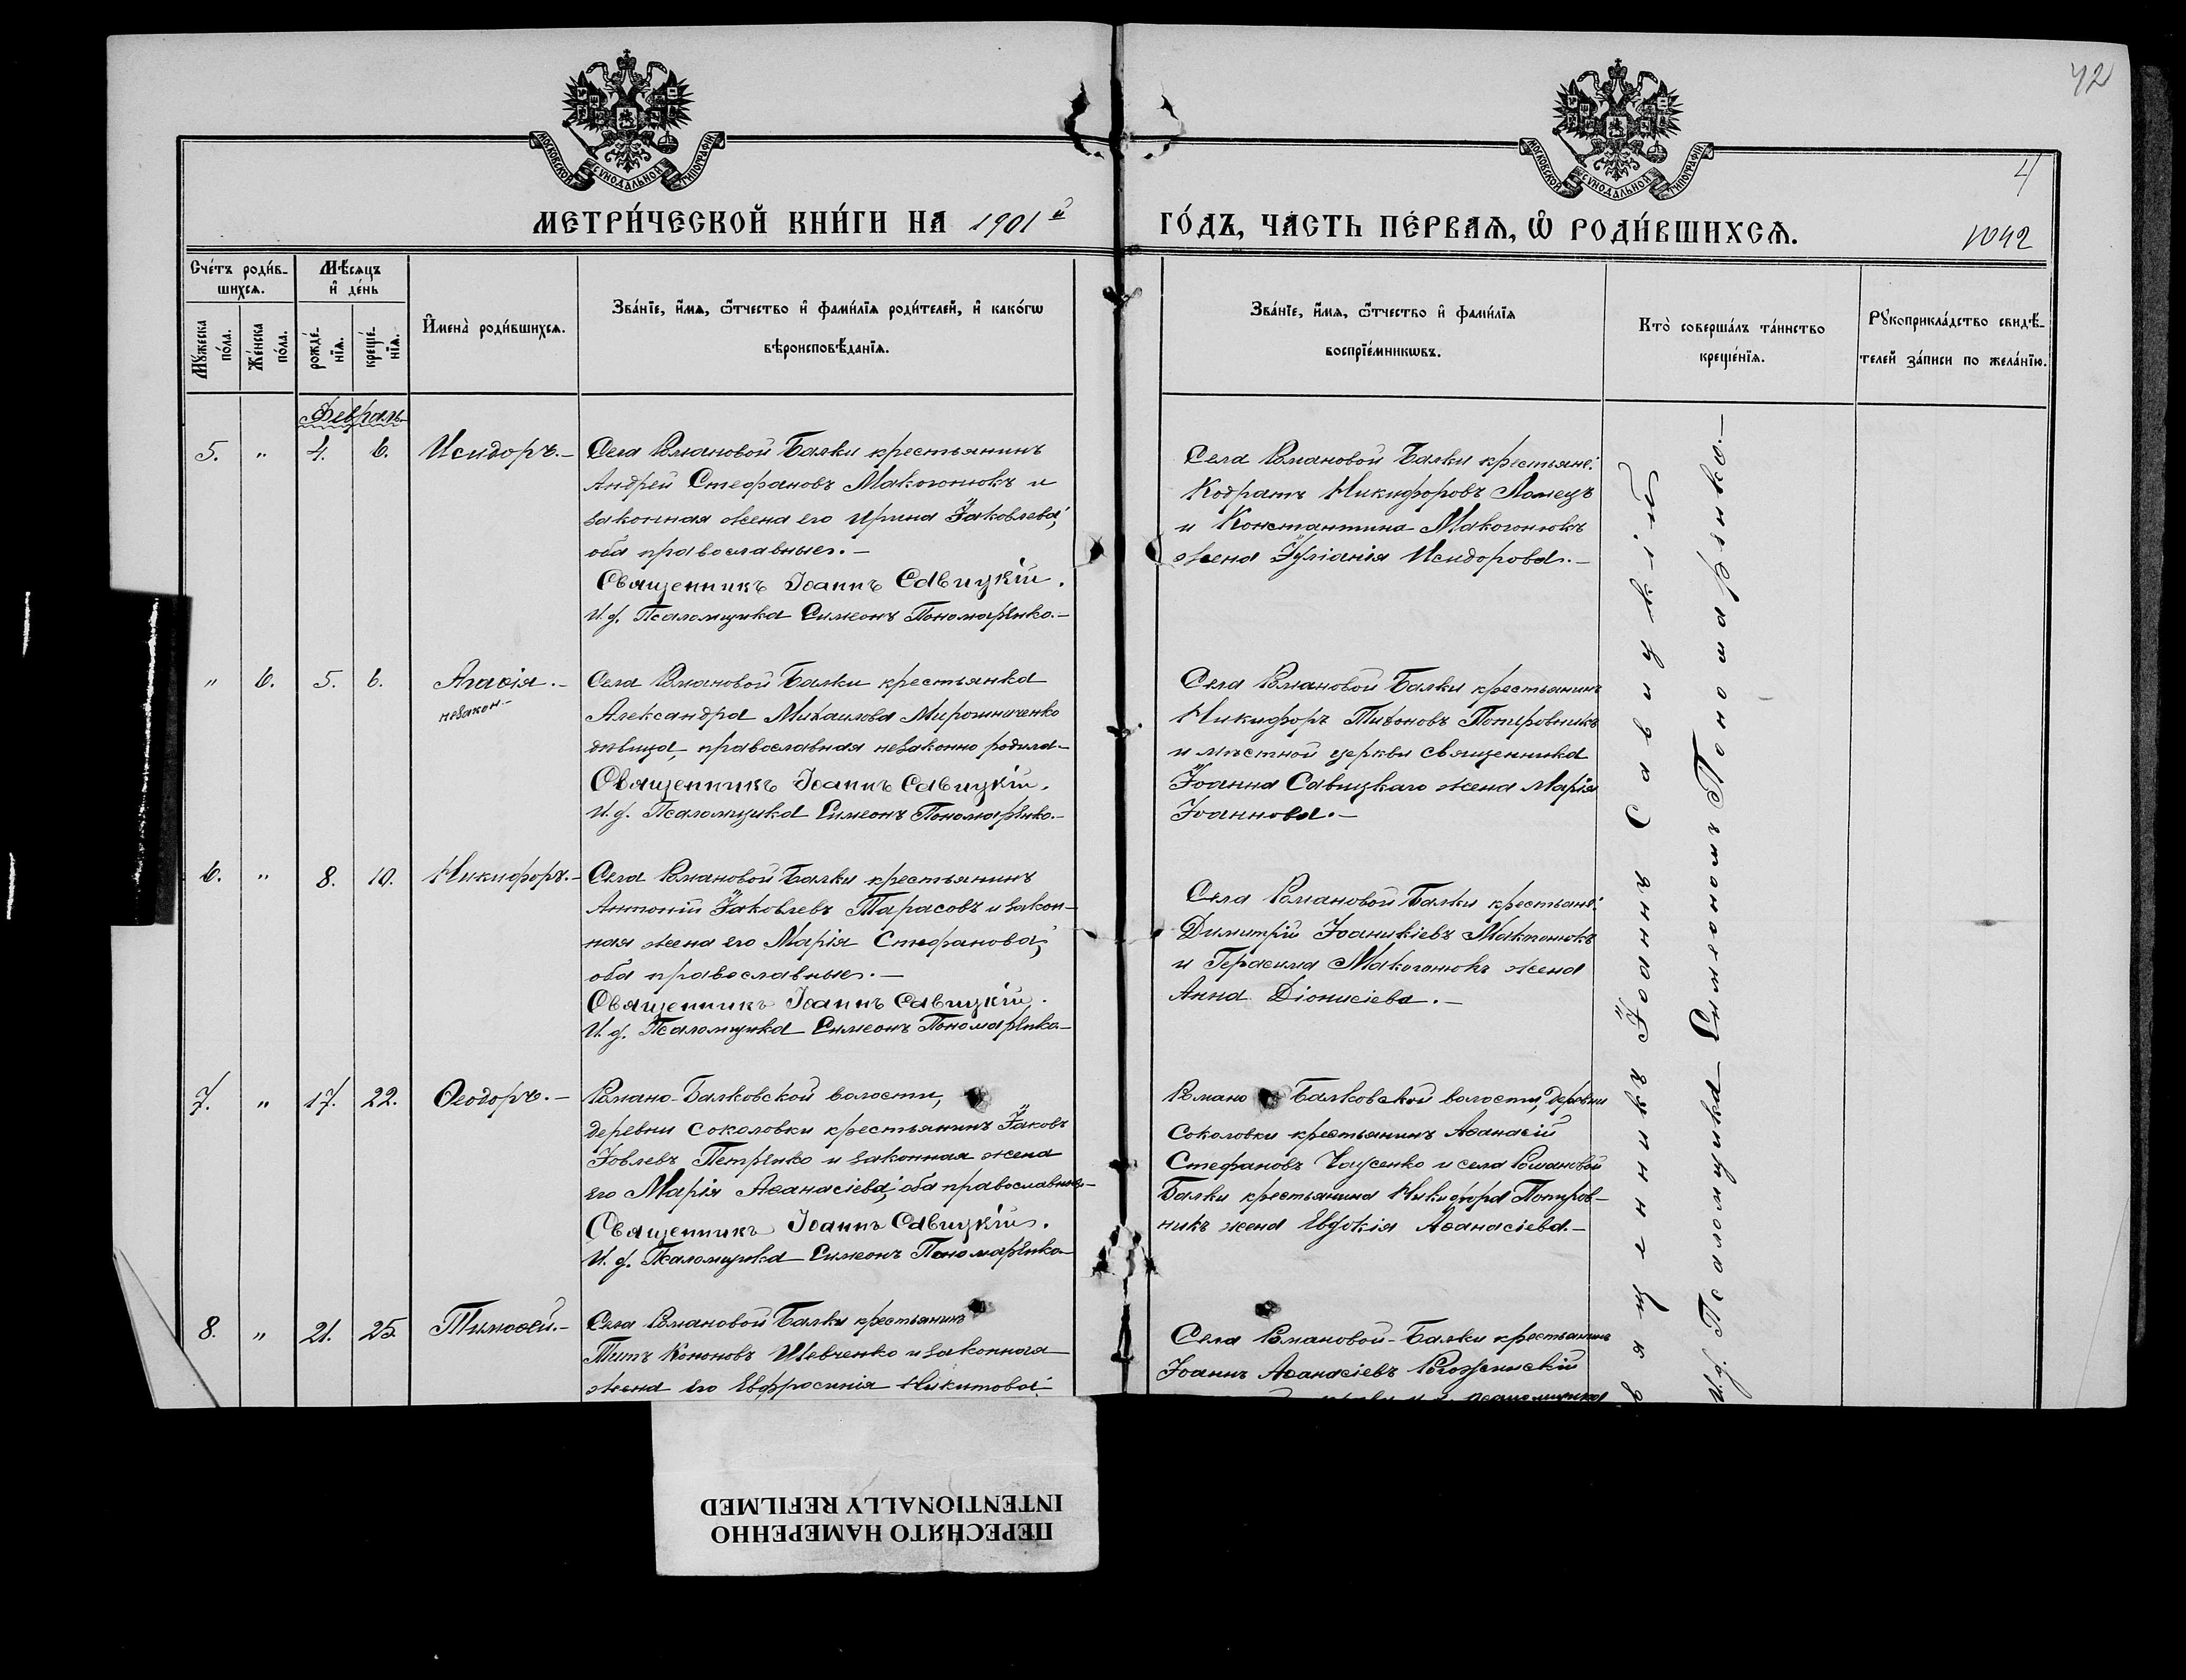 42
МОСКОВСКОЙ СѴНОДАЛЬНОЙ ТИПОГРАФІИ
МОСКОВСКОЙ СѴНОДАЛЬНОЙ ТИПОГРАФІИ
4
МЕТРИ́ЧЕСКОЙ КНИ́ГИ НА 1901й
ГО́ДЪ, ЧА́СТЬ ПЕ́РВАѦ, Ѿ РОДИ́ВШИХСѦ.
1042
Сче́тъ роди́в-
шихсѧ.
Мѣ́сѧцъ
и҆ де́нь
Мꙋ́жеска
по́ла.
Же́нска
по́ла.
рожде́-
нїѧ.
креще́-
нїѧ.
И҆мена̀ роди́вшихсѧ.
Зва́нїе, и҆́мѧ, ѻ҆́тчество и҆ фами́лїѧ роди́телей, и҆ како́гѡ
вѣроисповѣ́данїѧ.
Зва́нїе, и҆́мѧ, ѻ҆́тчество и҆ фами́лїѧ
воспрїе́мникѡвъ.
Кто̀ соверша́лъ та́инство
креще́нїѧ.
Рꙋкоприкла́дство свидѣ́-
телей за́писи по жела́нїю.
Февраль
5. " 4. 6. Исидоръ.-
Села Романовой Балки крестьянинъ
Андрей Стефановъ Макогонюкъ и
законная жена его Ирина Іаковлева;
оба православные.-
Священникъ Іоаннъ Савицкій.
И. д. Псаломщика Симеонъ Пономаренко.-
Села Романовой Балки крестьяне:
Кодратъ Никифоровъ
и Константина Макогонюкъ
жена Іуліанія Исидорова.-
" 6. 5. 6. Агаѳія.-
незакон.-
Села Романовой Балки крестьянка
Александра Михаилова Мирошниченко
дѣвица, православная незаконно родила-
Священникъ Іоаннъ Савицкій.
И. д. Псаломщика Симеонъ Пономаренко.-
Села Романовой Балки крестьянинъ
Никифоръ Тихоновъ
и мѣстной церкви священника
Іоанна Савицкаго жена Марія
Іоаннова.-
6. " 8. 10. Никифоръ.-
Села Романовой Балки крестьянинъ
Антоній Іаковлевъ Тарасовъ и закон-
ная жена его Марія Стефанова;
оба православные.-
Священникъ Іоаннъ Савицкій.
И. д. Псаломщика Симеонъ Пономаренко-
Села Романовой Балки крестьяне:
Димитрій Іоанникіевъ Макогонюкъ
и Герасима Макогонюкъ жена
Анна Діонисіева.-
7. " 17. 22. Ѳеодоръ.-
Романо-Балковской волости,
деревни Соколовки крестьянинъ Іаковъ
Іовлевъ Петренко и законная жена
его Марія Аѳанасіева; оба православные-
Священникъ Іоаннъ Савицкій.
И. д. Псаломщика Симеонъ Пономаренко-
Романо Балковской волости, деревни
Соколовки крестьянинъ Аѳанасій
Стефановъ и села Романовой
Балки крестьянина Никифора
никъ жена Евдокія Аѳанасіева.-
8. " 21. 25. Тимоѳей.-
Села Романовой Балки крестьянинъ
Титъ Кононовъ Шевченко и законная
жена его Евфросинія Никитова;
Села Романовой-Балки крестьянинъ
Іоаннъ Аѳанасіевъ
псаломщика
Священникъ Іоаннъ Савицкій
И. д. Псаломщика Симеонъ Пономаренко.-
ПЕРЕСНЯТО НАМЕРЕННО
INTENTIONALLY REFILMED